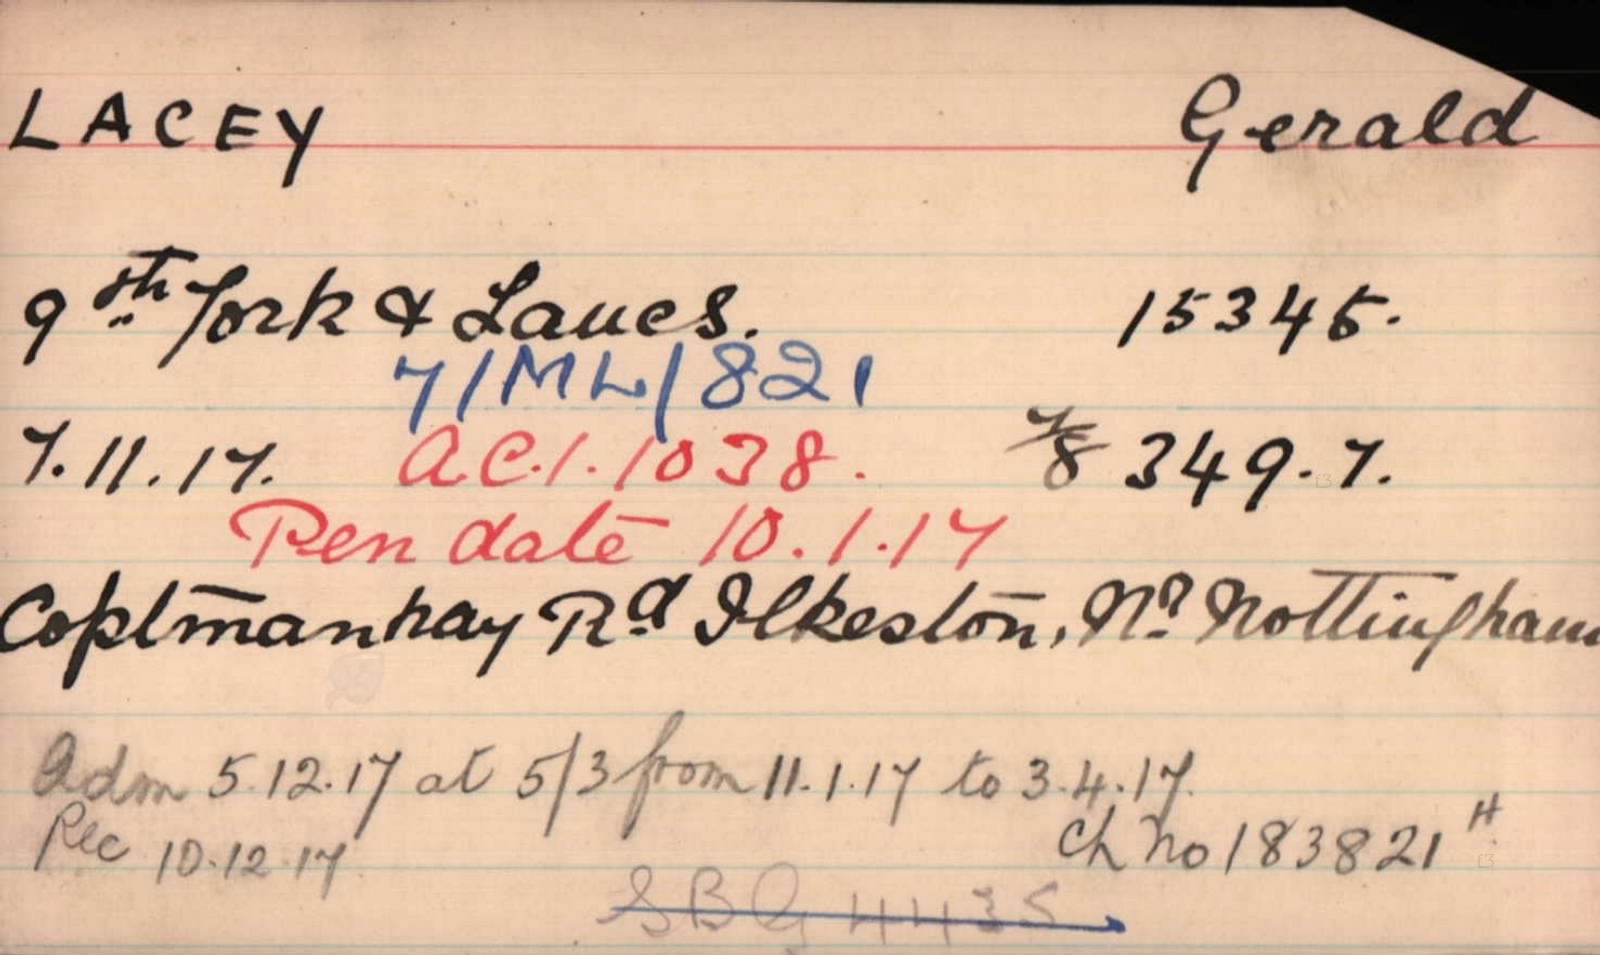 LACEY Gerald
9th York & Lancs. 15345.
7/ML/821
7.11.17. A.C.I. 1038. 7/8 349.7.
Pen date 10.1.17
Coptmanhay Rd Ilkeston, Nr Nottingham
Adm 5.12.17 at 5/3 from 11.1.17 to 3.4.17.
Rec 10.12.17 Ch No 183821 H
SBG 4435